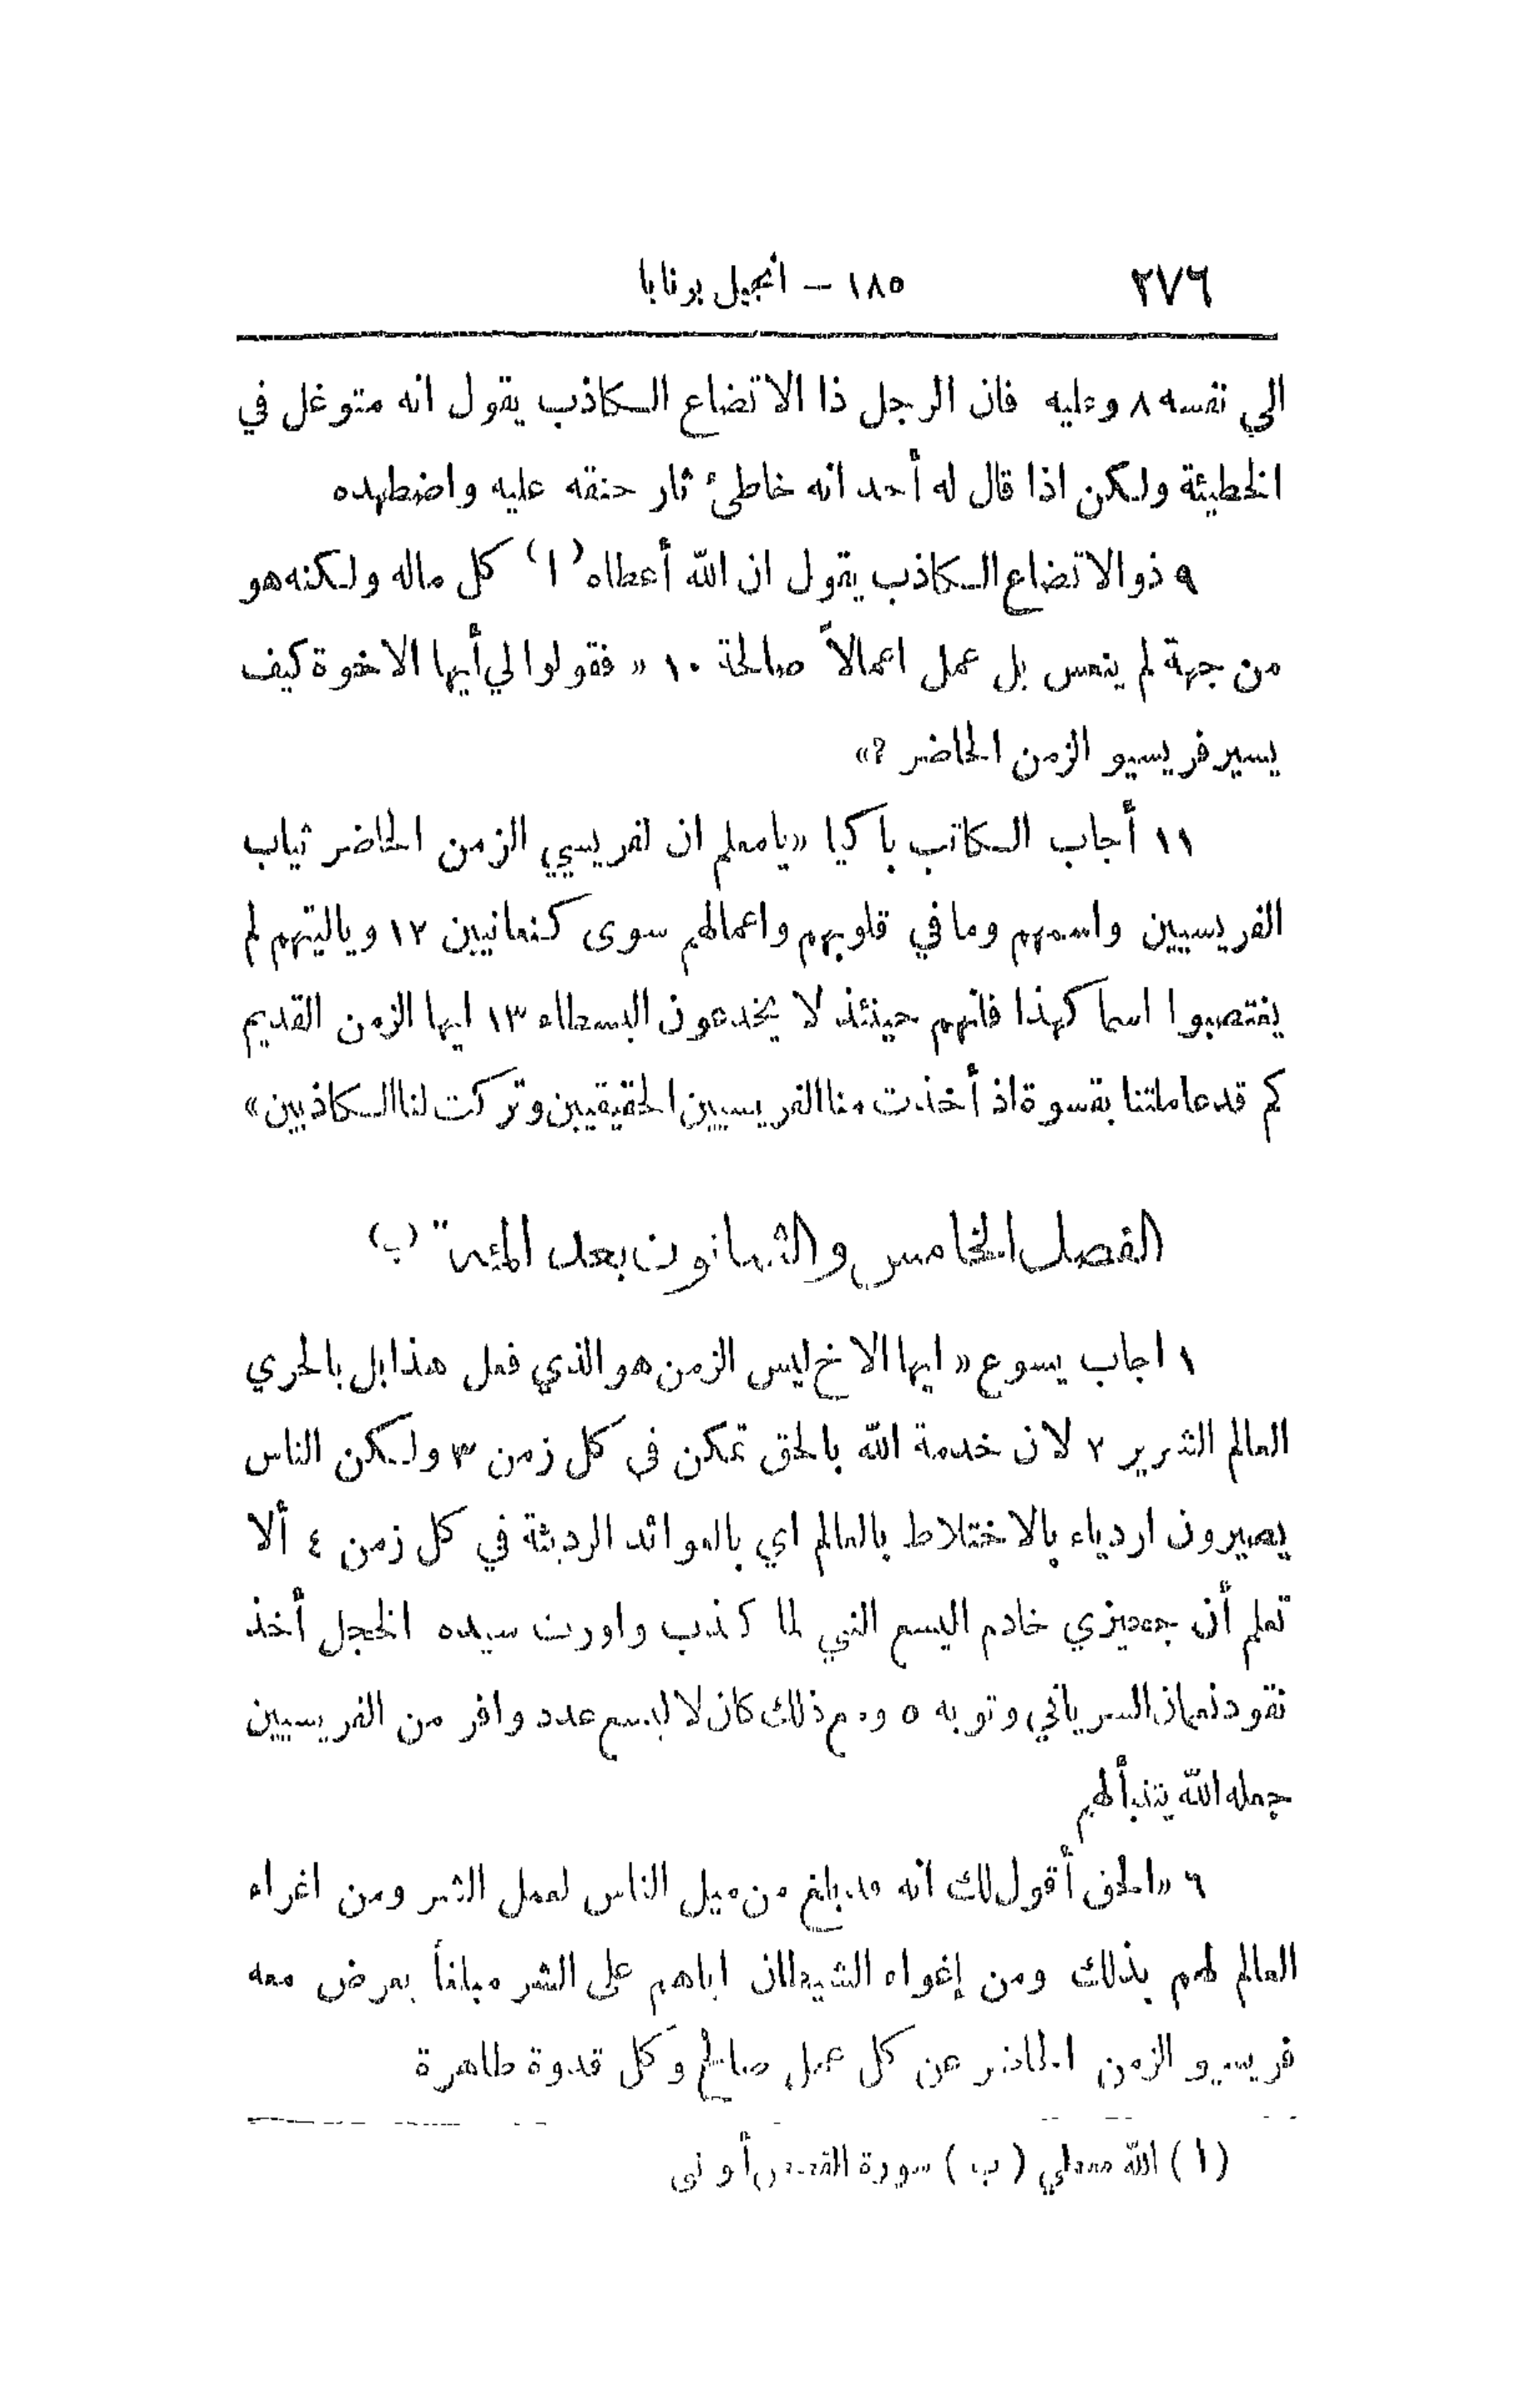 ٢٧٦ ١٨٥ – انجيل برنابا
الي نفسه ٨ وعليه فان الرجل ذا الاتضاع الكاذب يقول انه متوغل في
الخطيئة ولكن اذا قال له أحد انه خاطئ ثار حنقه عليه واضطهده
٩ ذو الاتضاع الكاذب يقول ان الله أعطاه (ا) كل ماله ولكنه هو
من جهة لم ينعس بل عمل اعمالاً صالحة ١٠ « فقولوا لي أيها الاخوة كيف
يسير فريسيو الزمن الحاضر ?»
١١ أجاب الكاتب باكيا «يامعلم ان لفريسيي الزمن الحاضر ثياب
الفريسيين واسمهم وما في قلوبهم واعمالهم سوى كنعانيين ١٢ وياليتهم لم
يغتصبوا اسما كهذا فانهم حينئذ لا يخدعون البسطاء ١٣ ايها الزمن القديم
كم قد عاملتنا بقسوة اذ أخذت منا الفريسيين الحقيقيين وتركت لنا الكاذبين»
الفصل الخامس والثمانون بعد المئة (ب)
١ اجاب يسوع « ايها الاخ ليس الزمن هو الذي فعل هذا بل بالحري
العالم الشرير ٢ لان خدمة الله بالحق تمكن في كل زمن ٣ ولكن الناس
يصيرون اردياء بالاختلاط بالعالم اي بالعوائد الرديئة في كل زمن ٤ ألا
تعلم أن جحيزي خادم اليسع النبي لما كذب واورث سيده الخجل أخذ
نقود نعمان السرياني وثوبه ٥ ومع ذلك كان لاليسع عدد وافر من الفريسيين
جعله الله يتنبأ لهم
٦ «الحق أقول لك انه قد بلغ من ميل الناس لعمل الشر ومن اغراء
العالم لهم بذلك ومن إغواء الشيطان اياهم على الشر مبلغاً يعرض معه
فريسيو الزمن الحاضر عن كل عمل صالح وكل قدوة طاهرة
(ا) الله معطي (ب) سورة